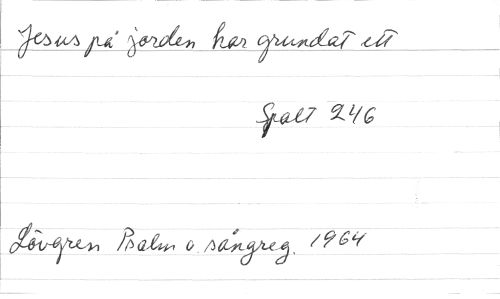 Jesus på jorden har grundat ett
Spalt 246
Lövgren Psalm o. sångreg. 1964